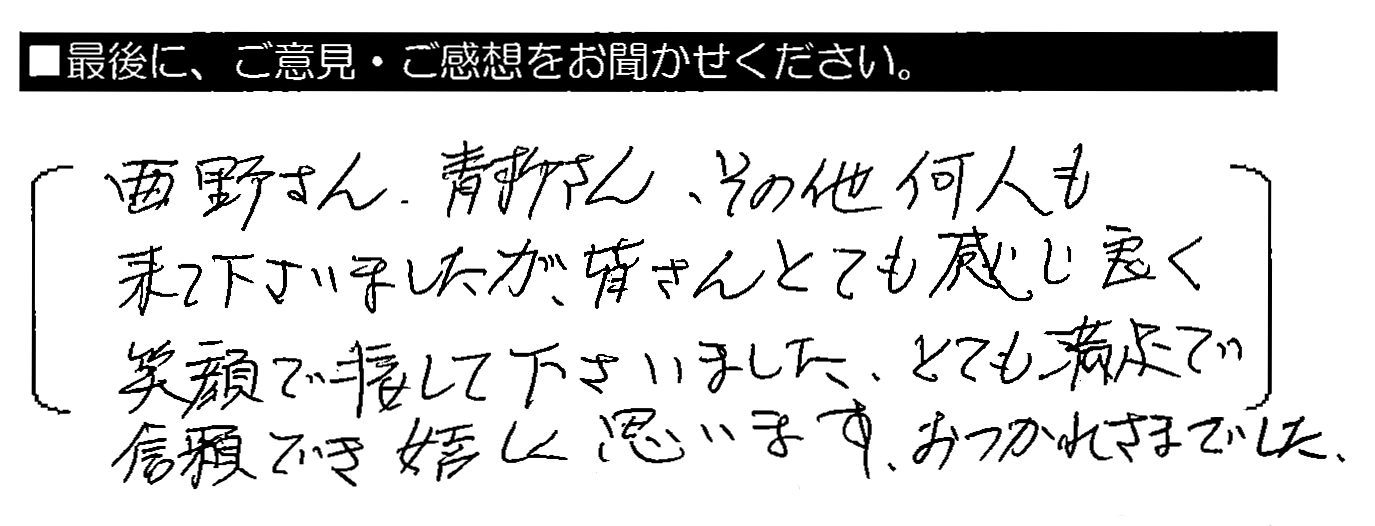 ■最後に、ご意見・ご感想をお聞かせください。
西野さん、青柳さん、その他何人も
来て下さいましたが、皆さんとても感じ良く
笑顔で接して下さいました、とても満足で
信頼でき嬉しく思います、おつかれさまでした、